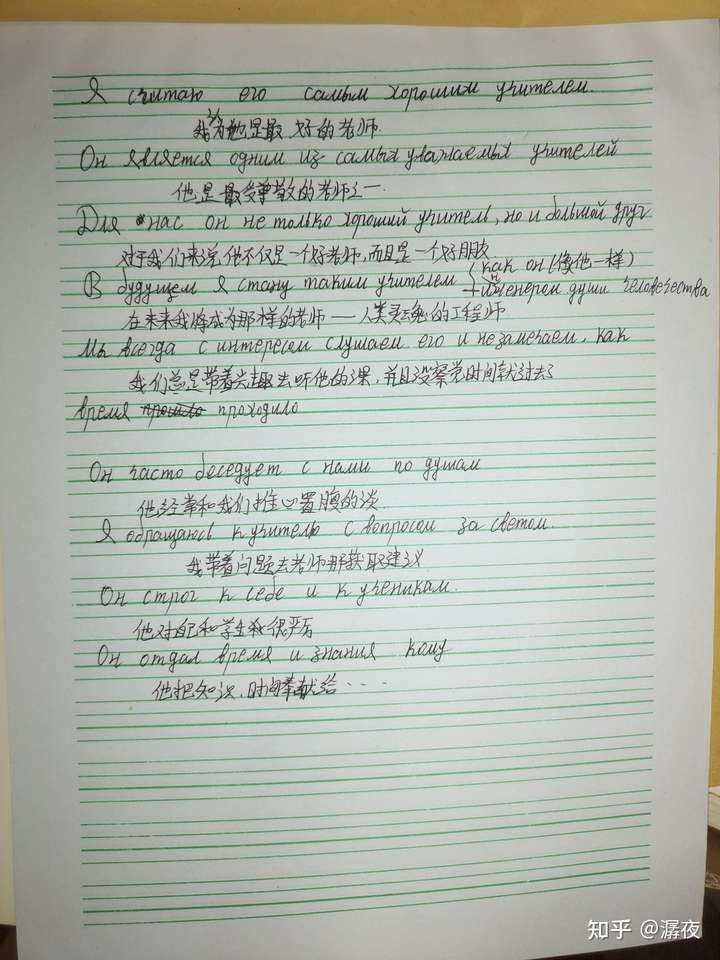 Я считаю его самым хорошим учителем.
我认为他是最好的老师.
Он является одним из самых уважаемых учителей
他是最受尊敬的老师之一.
Для нас он не только хороший учитель, но и большой друг
对于我们来说,他不仅是一个好老师,而且是一个好朋友
В будущем я стану таким учителем как он (像他一样)
инженером души человечества
在未来我将成为那样的老师——人类灵魂的工程师
Мы всегда с интересом слушаем его и незамечаем, как
我们总是带着兴趣去听他的课,并且没察觉时间就过去了
время прошло проходило
Он часто беседует с нами по душам
他经常和我们推心置腹的谈.
Я обращаюсь к учителю с вопросом за светом.
我带着问题去老师那获取建议
Он строг к себе и к ученикам.
他对自己和学生很严厉
Он отдал время и знания кому
他把知识、时间奉献给....
知乎 @潺夜